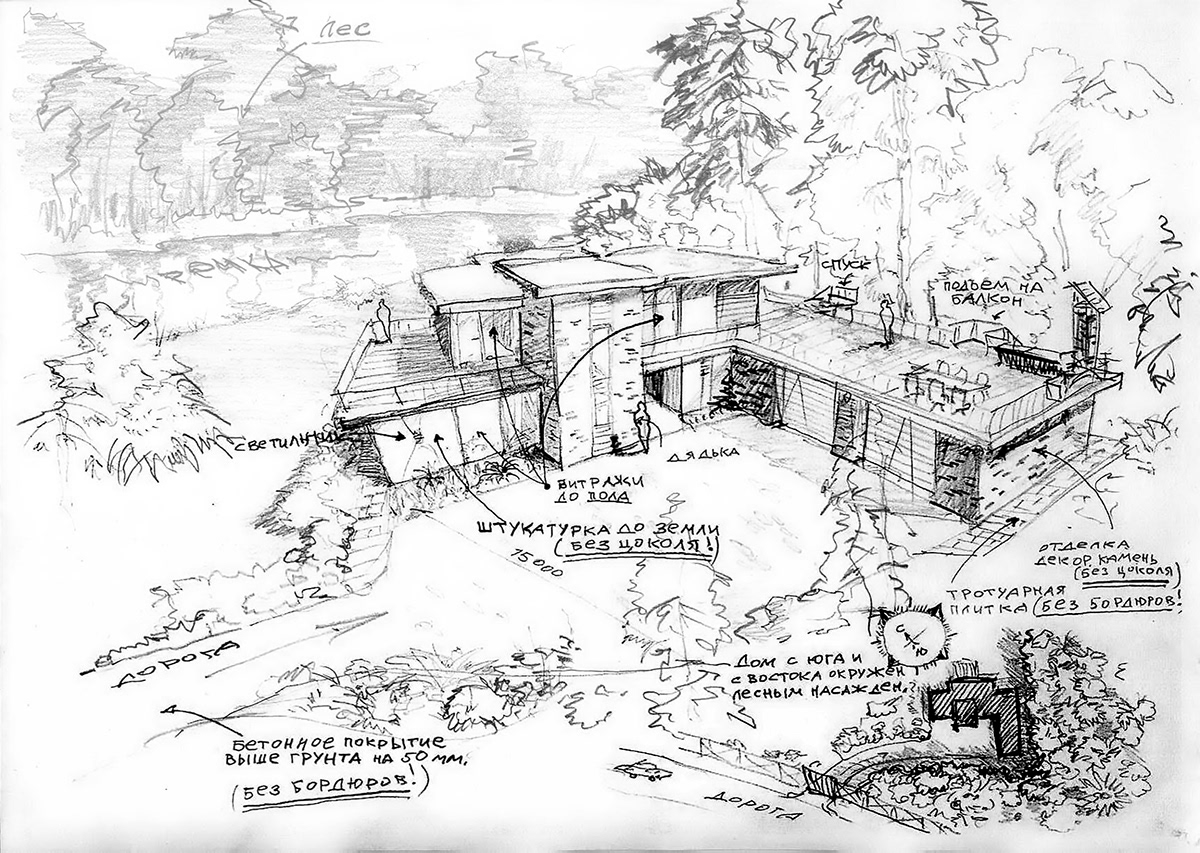 ЛЕС
РЕЧКА
СПУСК
ПОДЪЕМ НА
БАЛКОН
СВЕТИЛЬНИК
ДЯДЬКА
ВИТРАЖИ
ДО ПОЛА
ШТУКАТУРКА ДО ЗЕМЛИ
(БЕЗ ЦОКОЛЯ!)
15000
ОТДЕЛКА
ДЕКОР. КАМЕНЬ
(БЕЗ ЦОКОЛЯ)
ТРОТУАРНАЯ
ПЛИТКА (БЕЗ БОРДЮРОВ!
С
Ю
ДОРОГА
ДОМ С ЮГА И
С ВОСТОКА ОКРУЖЕН
ЛЕСНЫМ НАСАЖДЕН.
БЕТОННОЕ ПОКРЫТИЕ
ВЫШЕ ГРУНТА НА 50 ММ.
(БЕЗ БОРДЮРОВ!)
ДОРОГА